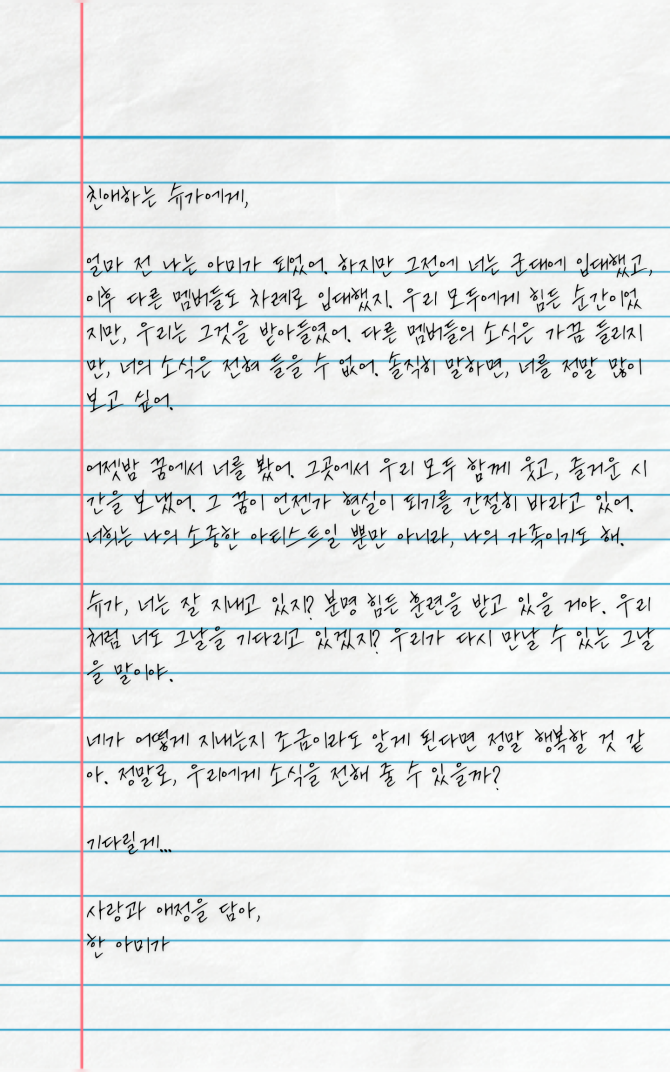 친애하는 슈가에게,
얼마 전 나는 아미가 되었어. 하지만 그전에 너는 군대에 입대했고,
이후 다른 멤버들도 차례로 입대했지. 우리 모두에게 힘든 순간이었
지만, 우리는 그것을 받아들였어. 다른 멤버들의 소식은 가끔 들리지
만, 너의 소식은 전혀 들을 수 없어. 솔직히 말하면, 너를 정말 많이
보고 싶어.
어젯밤 꿈에서 너를 봤어. 그곳에서 우리 모두 함께 웃고, 즐거운 시
간을 보냈어. 그 꿈이 언젠가 현실이 되기를 간절히 바라고 있어.
너희는 나의 소중한 아티스트일 뿐만 아니라, 나의 가족이기도 해.
슈가, 너는 잘 지내고 있지? 분명 힘든 훈련을 받고 있을 거야. 우리
처럼 너도 그날을 기다리고 있겠지? 우리가 다시 만날 수 있는 그날
을 말이야.
네가 어떻게 지내는지 조금이라도 알게 된다면 정말 행복할 것 같
아. 정말로, 우리에게 소식을 전해 줄 수 있을까?
기다릴게...
사랑과 애정을 담아,
한 아미가